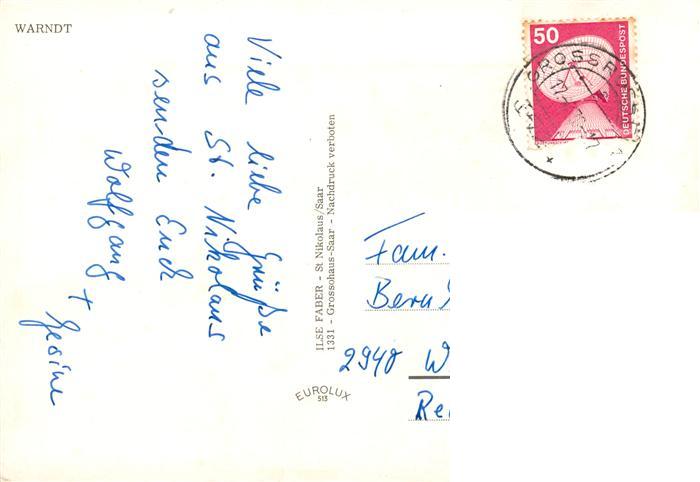 WARNDT
Viele liebe Grüße
aus St. Nikolaus
senden Euch
Wolfgang
+ Gesine
ILSE FABER - St Nikolaus/Saar
1331 - Grossohaus-Saar - Nachdruck verboten
EUROLUX
513
50
DEUTSCHE BUNDESPOST
Fam.
Bern
2940 W
Re